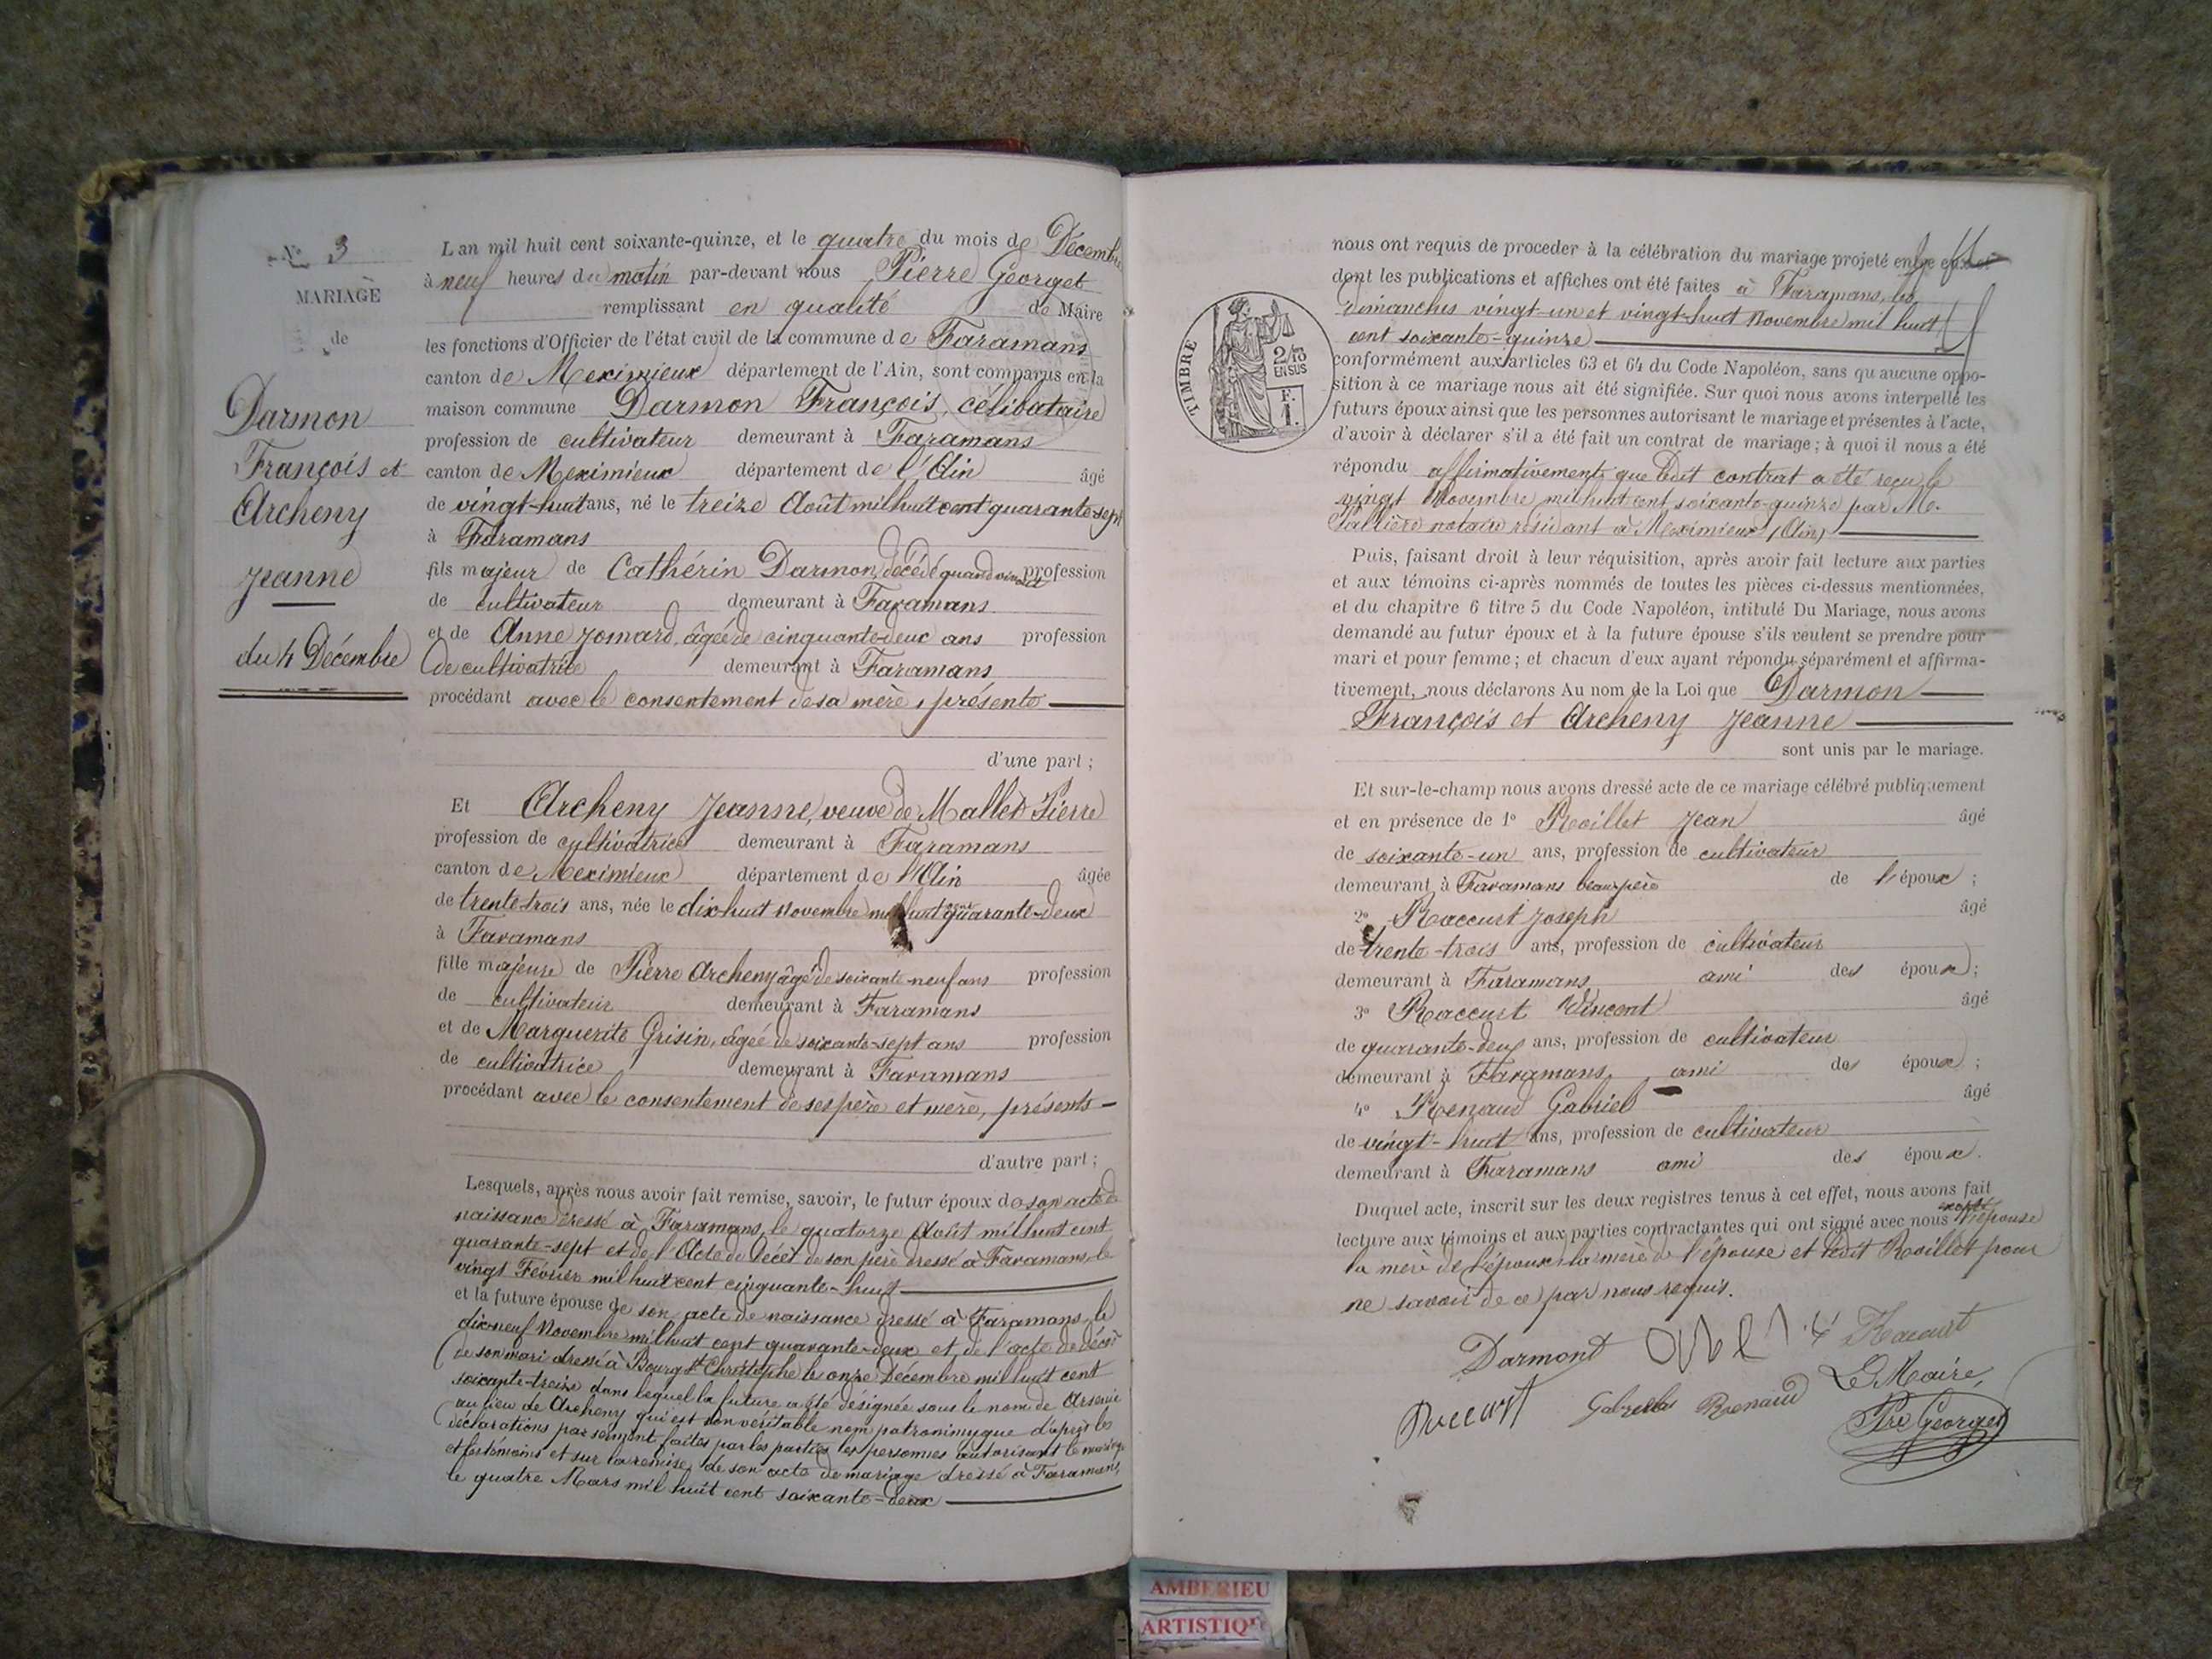 N° 3
MARIAGE
de
Darmon
François et
Archeny
Jeanne
du 4 Décembre
L'an mil huit cent soixante-quinze, et le quatre du mois de Décembre
à neuf heures du matin par-devant nous Pierre Georget
remplissant en qualité de Maire
les fonctions d'Officier de l'état civil de la commune de Faramans
canton de Meximieux département de l'Ain, sont comparus en la
maison commune Darmon François, célibataire
profession de cultivateur demeurant à Faramans
canton de Meximieux département de l'Ain âgé
de vingt-huit ans, né le treize Août mil huit cent quarante-sept
à Faramans
fils majeur de Cathérin Darmon, décédé quand vivait profession
de cultivateur demeurant à Faramans
et de Anne Jomard, âgée de cinquante-deux ans profession
de cultivatrice demeurant à Faramans
procédant avec le consentement de sa mère, présente
d'une part ;
Et Archeny Jeanne, veuve de Mallet Pierre
profession de cultivatrice demeurant à Faramans
canton de Meximieux département de l'Ain âgée
de trente-trois ans, née le dix-huit Novembre mil huit cent quarante-deux
à Faramans
fille majeure de Pierre Archeny âgé de soixante-neuf ans profession
de cultivateur demeurant à Faramans
et de Marguerite Grisin, âgée de soixante-sept ans profession
de cultivatrice demeurant à Faramans
procédant avec le consentement de ses père et mère, présents
d'autre part ;
Lesquels, après nous avoir fait remise, savoir, le futur époux de son acte de
naissance dressé à Faramans, le quatorze Août mil huit cent
quarante-sept et de l'Acte de décès de son père dressé à Faramans, le
vingt Février mil huit cent cinquante-huit
et la future épouse de son acte de naissance dressé à Faramans, le
dix-neuf Novembre mil huit cent quarante-deux et de l'acte de décès
de son mari dressé à Bourg St Christophe le onze Décembre mil huit cent
soixante-treize dans lequel la future a été désignée sous le nom de Arsenie
au lieu de Archeny qui est son véritable nom patronimyque d'après les
déclarations par serment faites par les parties, les personnes autorisant le mariage
et les témoins et sur la remise de son acte de mariage dressé à Faramans,
le quatre Mars mil huit cent soixante-deux
nous ont requis de proceder à la célébration du mariage projeté entre eux et
dont les publications et affiches ont été faites à Faramans, les
dimanches vingt-un et vingt-huit Novembre mil huit
cent soixante-quinze
TIMBRE
2/10
EN SUS
F.
1.
conformément aux articles 63 et 64 du Code Napoléon, sans qu'aucune oppo-
sition à ce mariage nous ait été signifiée. Sur quoi nous avons interpellé les
futurs époux ainsi que les personnes autorisant le mariage et présentes à l'acte,
d'avoir à déclarer s'il a été fait un contrat de mariage ; à quoi il nous a été
répondu affirmativement, que ledit contrat a été reçu le
vingt Novembre mil huit cent soixante-quinze par Me.
notaire résidant à Meximieux (Ain)
Puis, faisant droit à leur réquisition, après avoir fait lecture aux parties
et aux témoins ci-après nommés de toutes les pièces ci-dessus mentionnées,
et du chapitre 6 titre 5 du Code Napoléon, intitulé Du Mariage, nous avons
demandé au futur époux et à la future épouse s'ils veulent se prendre pour
mari et pour femme ; et chacun d'eux ayant répondu séparément et affirma-
tivement, nous déclarons Au nom de la Loi que Darmon
François et Archeny Jeanne
sont unis par le mariage.
Et sur-le-champ nous avons dressé acte de ce mariage célébré publiquement
et en présence de 1° Roillet Jean âgé
de soixante-un ans, profession de cultivateur
demeurant à Faramans beau-père de l'époux ;
2° Raccurt Joseph âgé
de trente-trois ans, profession de cultivateur
demeurant à Faramans ami des époux ;
3° Raccurt Vincent âgé
de quarante-deux ans, profession de cultivateur
demeurant à Faramans ami des époux ;
4° Renaud Gabriel âgé
de vingt-huit ans, profession de cultivateur
demeurant à Faramans ami des époux.
Duquel acte, inscrit sur les deux registres tenus à cet effet, nous avons fait
lecture aux témoins et aux parties contractantes qui ont signé avec nous excepté l'épouse
la mère de l'époux, la mère de l'épouse et ledit Roillet pour
ne savoir de ce par nous requis.
Darmont Racurt
Le Maire,
Raccurt Gabriel Renaud Pre Georget
AMBERIEU
ARTISTIQUE